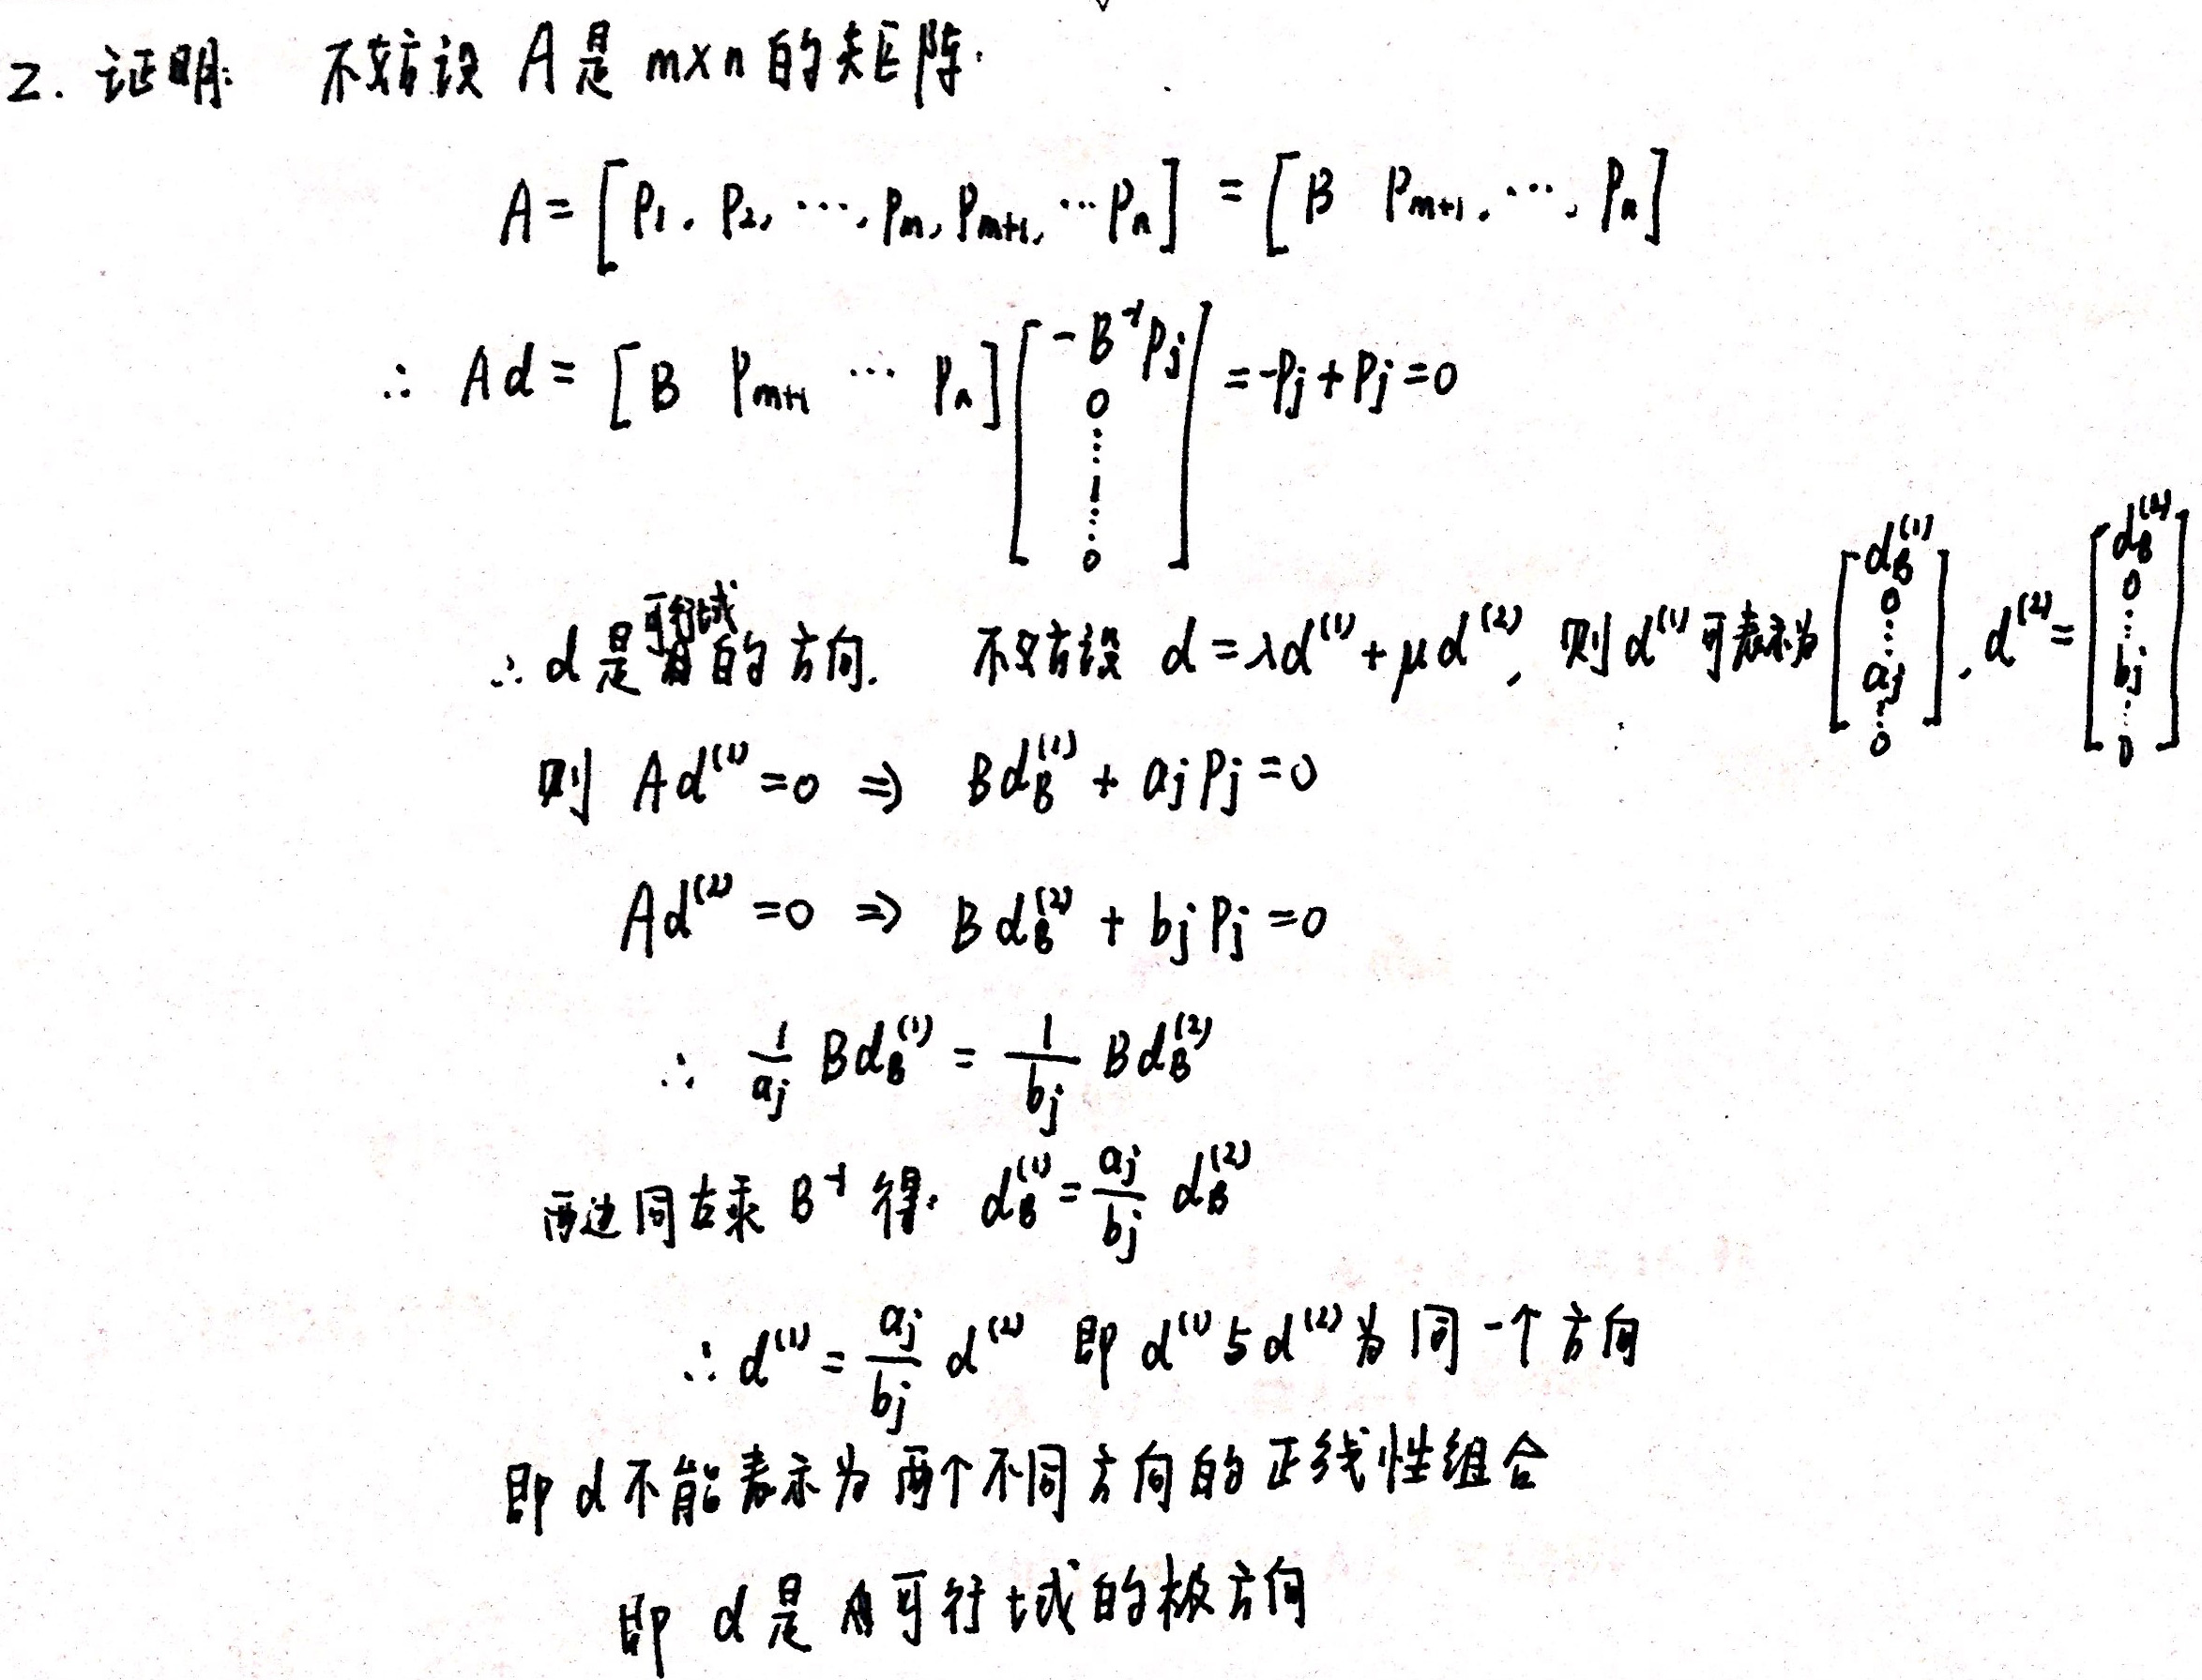 2. 证明: 不妨设 A 是 m×n 的矩阵.
A = [P₁, P₂, ⋯, Pₘ, Pₘ₊₁, ⋯ Pₙ] = [B Pₘ₊₁, ⋯, Pₙ]
∴ Ad = [B Pₘ₊₁ ⋯ Pₙ] [-B⁻¹Pj 0 ⋮ 1 ⋮ 0] = -Pj + Pj = 0
∴ d 是可行域的方向. 不妨设 d = λd⁽¹⁾ + μd⁽²⁾, 则 d⁽¹⁾ 可表示为 [d_B⁽¹⁾ 0 ⋮ aj ⋮ 0], d⁽²⁾ = [d_B⁽²⁾ 0 ⋮ bj ⋮ 0]
则 Ad⁽¹⁾ = 0 ⇒ Bd_B⁽¹⁾ + ajPj = 0
Ad⁽²⁾ = 0 ⇒ Bd_B⁽²⁾ + bjPj = 0
∴ 1/aj Bd_B⁽¹⁾ = 1/bj Bd_B⁽²⁾
两边同左乘 B⁻¹ 得: d_B⁽¹⁾ = aj/bj d_B⁽²⁾
∴ d⁽¹⁾ = aj/bj d⁽²⁾ 即 d⁽¹⁾ 与 d⁽²⁾ 为同一个方向
即 d 不能表示为两个不同方向的正线性组合
即 d 是可行域的极方向